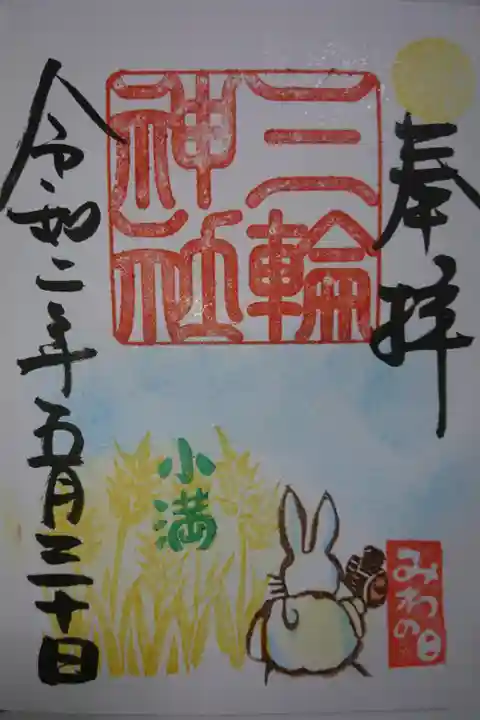 奉拝
三輪
神社
令和二年五月三十日
小満
みわの